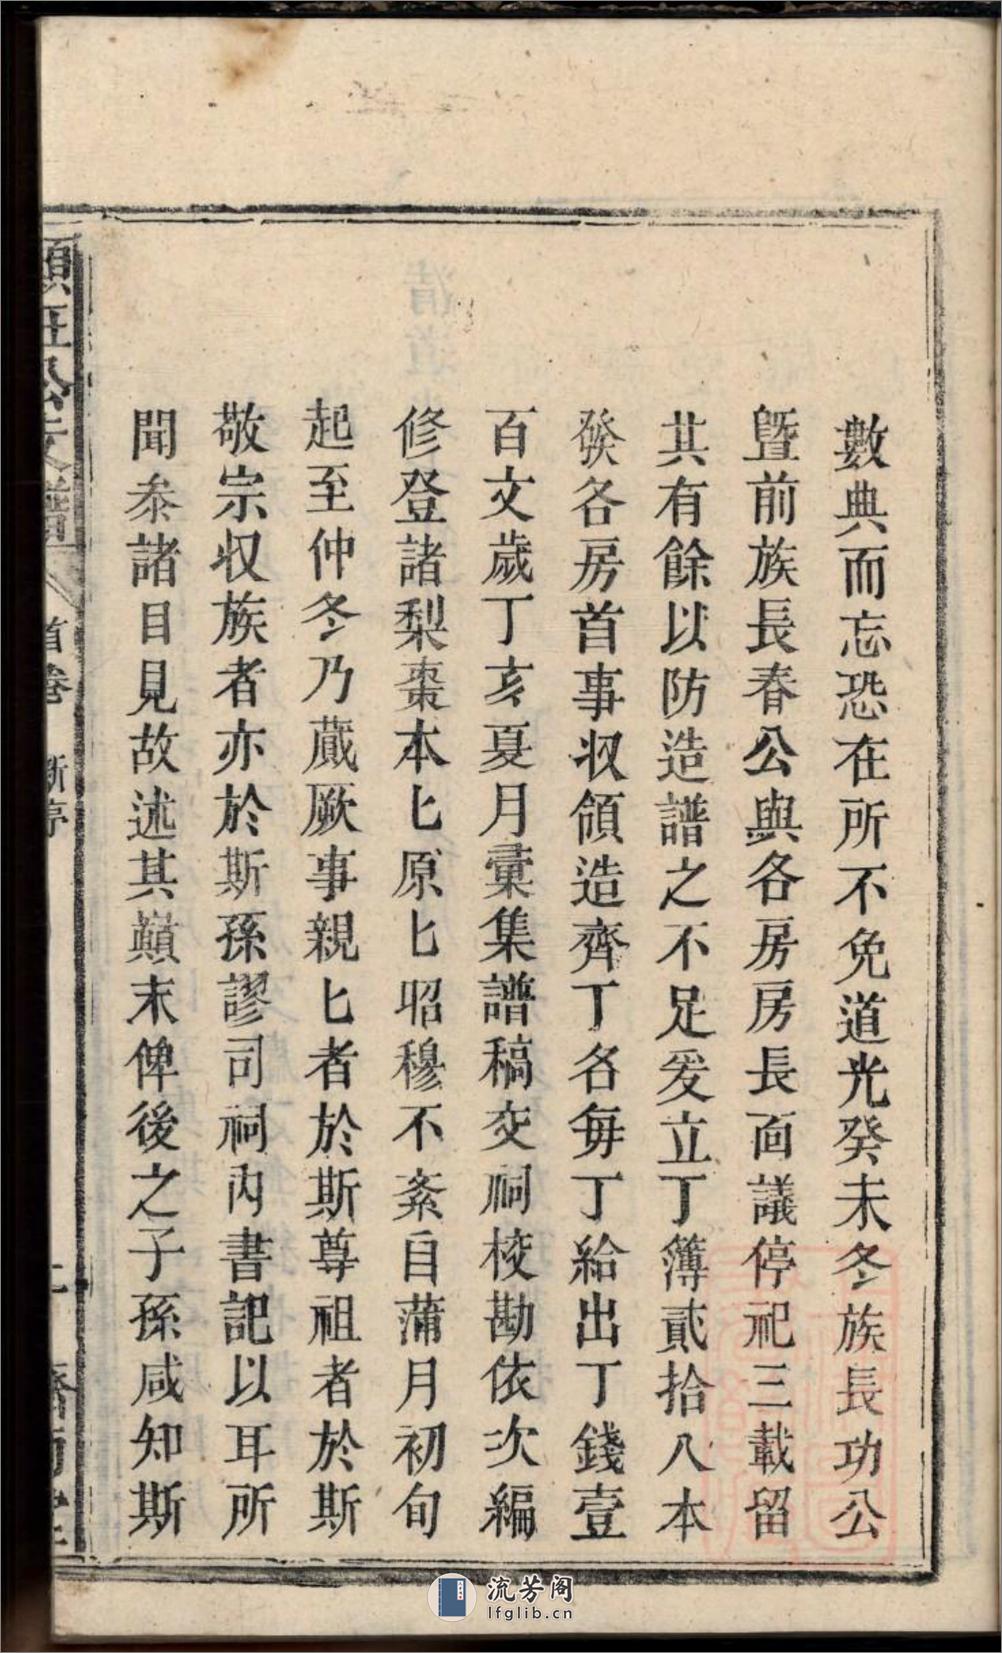 數典而忘恐在所不免道光癸未冬族長功公
曁前族長春公與各房房長面議停祀三載留
其有餘以防造譜之不足爰立丁簿貳拾八本
發各房首事収領造齊丁名每丁給出丁錢壹
百文歲丁亥夏月彙集譜稿交祠校勘依次編
修登諸梨棗本匕原匕昭穆不紊自蒲月初旬
起至仲冬乃蕆厥事親匕者於斯尊祖者於斯
敬宗収族者亦於斯孫謬司祠內書記以耳所
聞叅諸目見故述其巔末俾後之子孫咸知斯
首卷
流芳阁
lfglib.cn